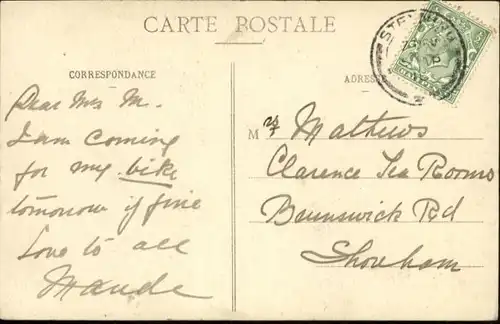 CARTE POSTALE
CORRESPONDANCE
Dear Mrs M.
I am coming
for my bike
tomorrow if fine
Love to all
Maude
STEYNING
ADRES
M rs Mathews
Clarence Tea Rooms
Brunswick Rd
Shoreham